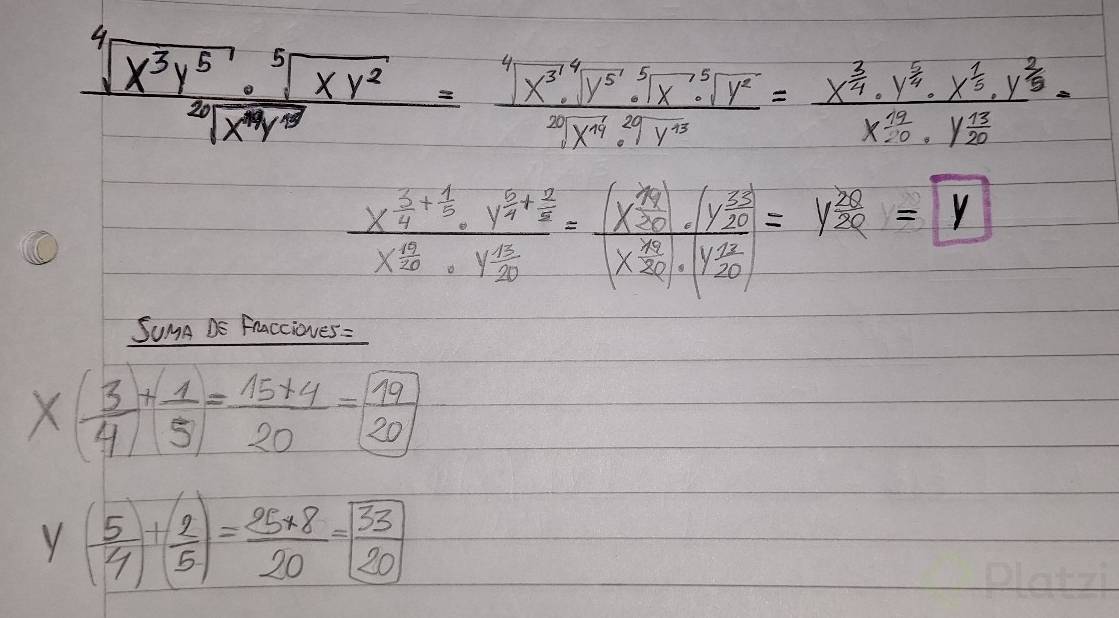 ⁴√(x³y⁵) · ⁵√(xy²) / ²⁰√(x¹⁹y¹³) = ⁴√x³ · ⁴√y⁵ · ⁵√x · ⁵√y² / ²⁰√x¹⁹ · ²⁰√y¹³ = x^(3/4) · y^(5/4) · x^(1/5) · y^(2/5) / x^(19/20) · y^(13/20) =
x^(3/4+1/5) · y^(5/4+2/5) / x^(19/20) · y^(13/20) = (x^(19/20)) · (y^(33/20)) / (x^(19/20)) · (y^(13/20)) = y^(20/20) = y
SUMA DE FRACCIONES=
X (3/4) + (1/5) = 15+4/20 = 19/20
y (5/4) + (2/5) = 25+8/20 = 33/20
Platzi